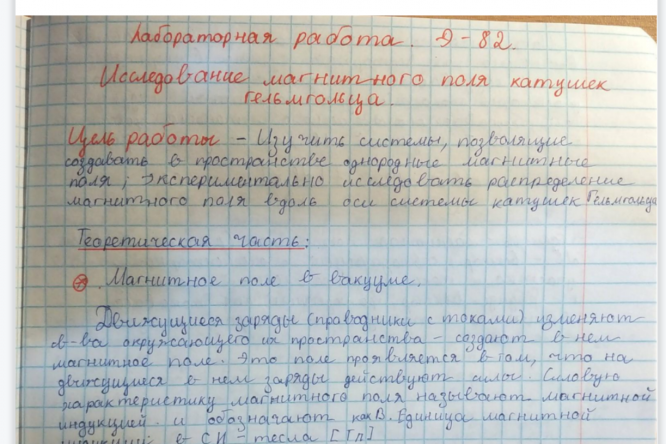 Лабораторная работа. Э-82.
Исследование магнитного поля катушек
Гельмгольца.
Цель работы – Изучить системы, позволящие
создавать в пространстве однородные магнитные
поля; экспериментально исследовать распределение
магнитного поля вдоль оси системы катушек Гельмгольца
Теоретическая часть:
Магнитное поле в вакууме.
Движущиеся заряды (проводники с токами) изменяют
св-ва окружающего их пространства – создают в нем
магнитное поле. Это поле проявляется в том, что на
движущиеся в нем заряды действуют силы. Силовую
характеристику магнитного поля называют магнитной
индукцией и обозначают как B. Единица магнитной
индукции в СИ – тесла [Тл]